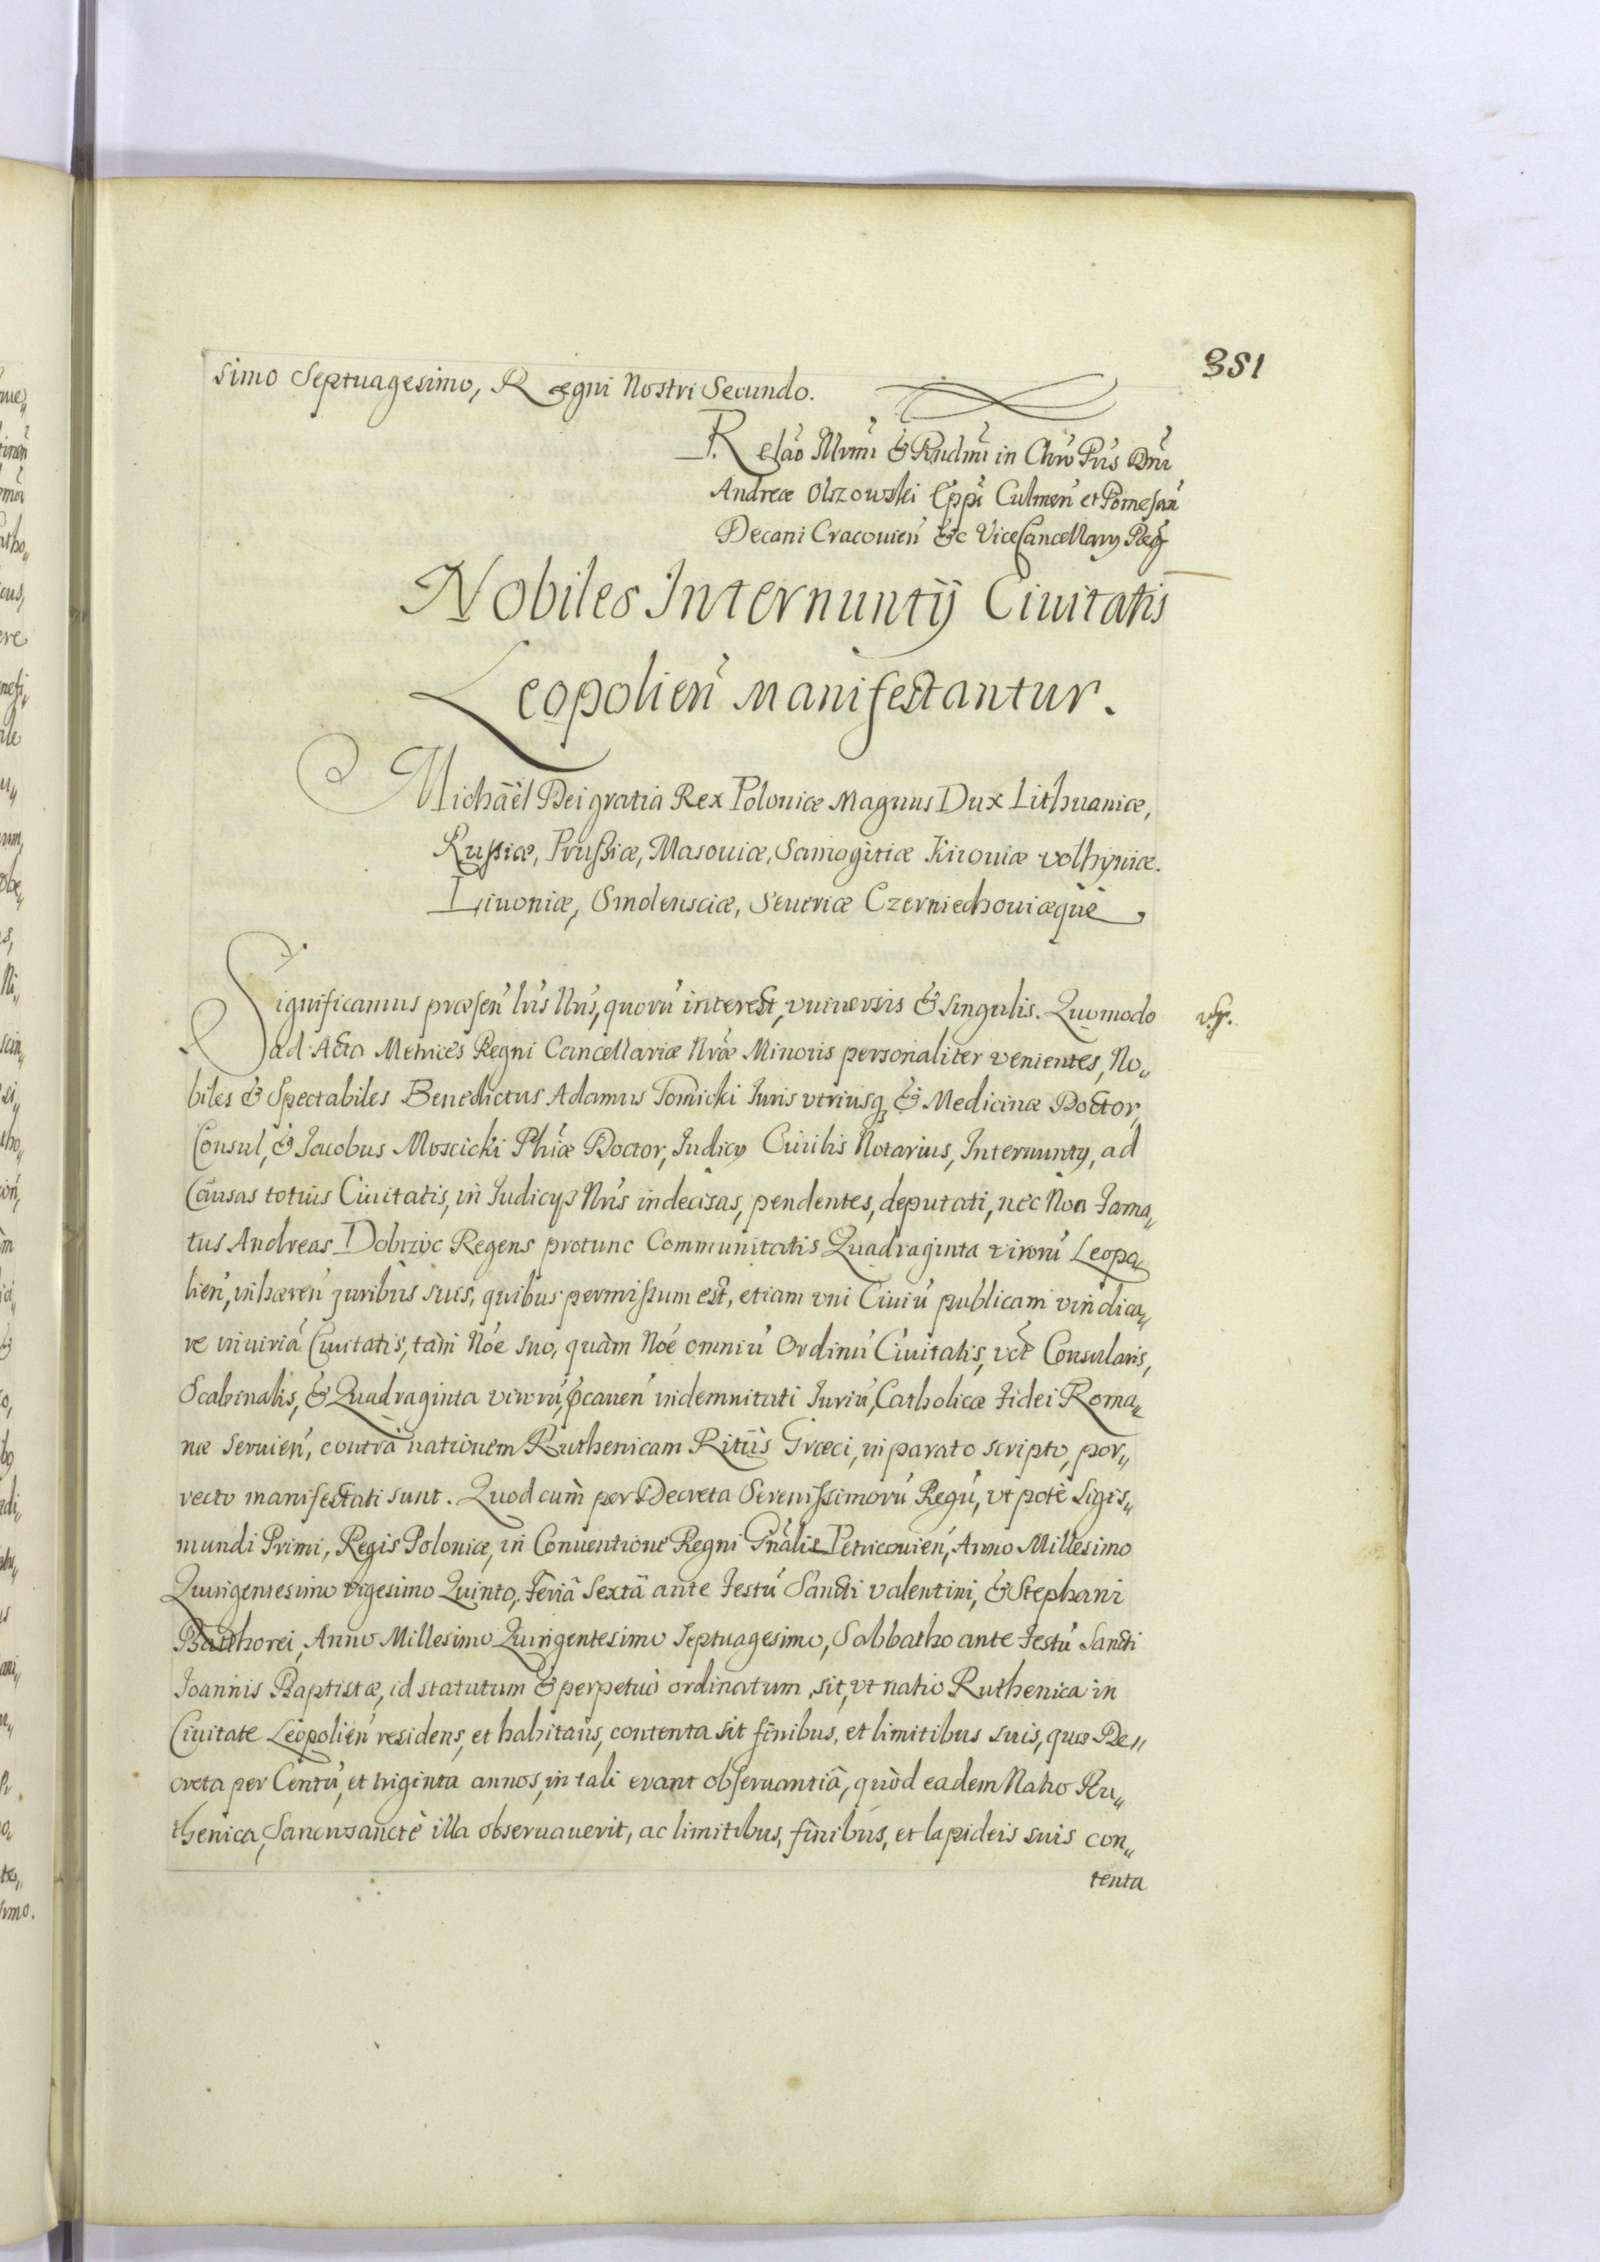 351
simo Septuagesimo, Regni Nostri Secundo.
Relaõ Illrmi & Rndmi in Chro Pris Dni
Andreæ Olszowski Eppi Culmen et Pomesan
Decani Cracouien &c ViceCancellarij Reg
Nobiles Internuntij Ciuitatis
Leopolien manifestantur.
Michaël Dei gratia Rex Poloniæ Magnus Dux Lithuaniæ,
Russiæ, Prussiæ, Masouiæ, Samogitiæ Kiiouiæ volhyniæ.
Liuoniæ, Smolensciæ, Seueriæ Czerniechouiæquè,
Significamus præsen lris nris, quoru interest, vniuersis & singulis. Quomodo
ad Acta Metrices Regni Cancellariæ Nræ Minoris personaliter venientes, No„
biles & Spectabiles Benedictus Adamus Tomicki Iuris vtriusq, & Medicinæ Doctor,
Consul, & Iacobus Moscicki Phiæ Doctor, Iudicij Ciuilis Notarius, Internuntij, ad
Causas totius Ciuitatis, in Iudicijs Nris indecisas, pendentes, deputati, nec Non Fama„
tus Andreas Dobrzyc Regens protunc Communitatis Quadraginta viroru Leopo„
lien, inhæren juribus suis, quibus permissum est, etiam vni Ciuiu publicam vindica„
re iniuriã Ciuitatis, tàm Nõe suo, quàm Nõe omniu Ordinu Ciuitatis, vct Consularis,
Scabinalis, & Quadraginta viroru, pcauen indemnitati Iuriu, Catholicæ Fidei Roma„
næ seruien, contrà nationem Ruthenicam Ritûs Græci, in parato scripto, por„
recto manifestati sunt. Quod cum per Decreta Serenissimoru Regu, vt potè Sigis„
mundi Primi, Regis Poloniæ, in Conuentione Regni Gnali Petricouien, Anno Millesimo
Quingentesimo vigesimo Quinto, Feriâ Sextâ ante Festu Sancti Valentini, & Stephani
Batthorei, Anno Millesimo Quingentesimo Septuagesimo, Sabbatho ante Festu Sancti
Ioannis Baptistæ, id statutum & perpetuò ordinatum sit, vt natio Ruthenica in
Ciuitate Leopolien residens, et habitans, contenta sit finibus, et limitibus suis, quæ De„
creta per Centu, et triginta annos, in tali erant obseruantiâ, quòd eadem Natio Ru„
thenica, Sancrosanctè illa obseruauerit, ac limitibus, finibus, et lapideis suis con„
tenta